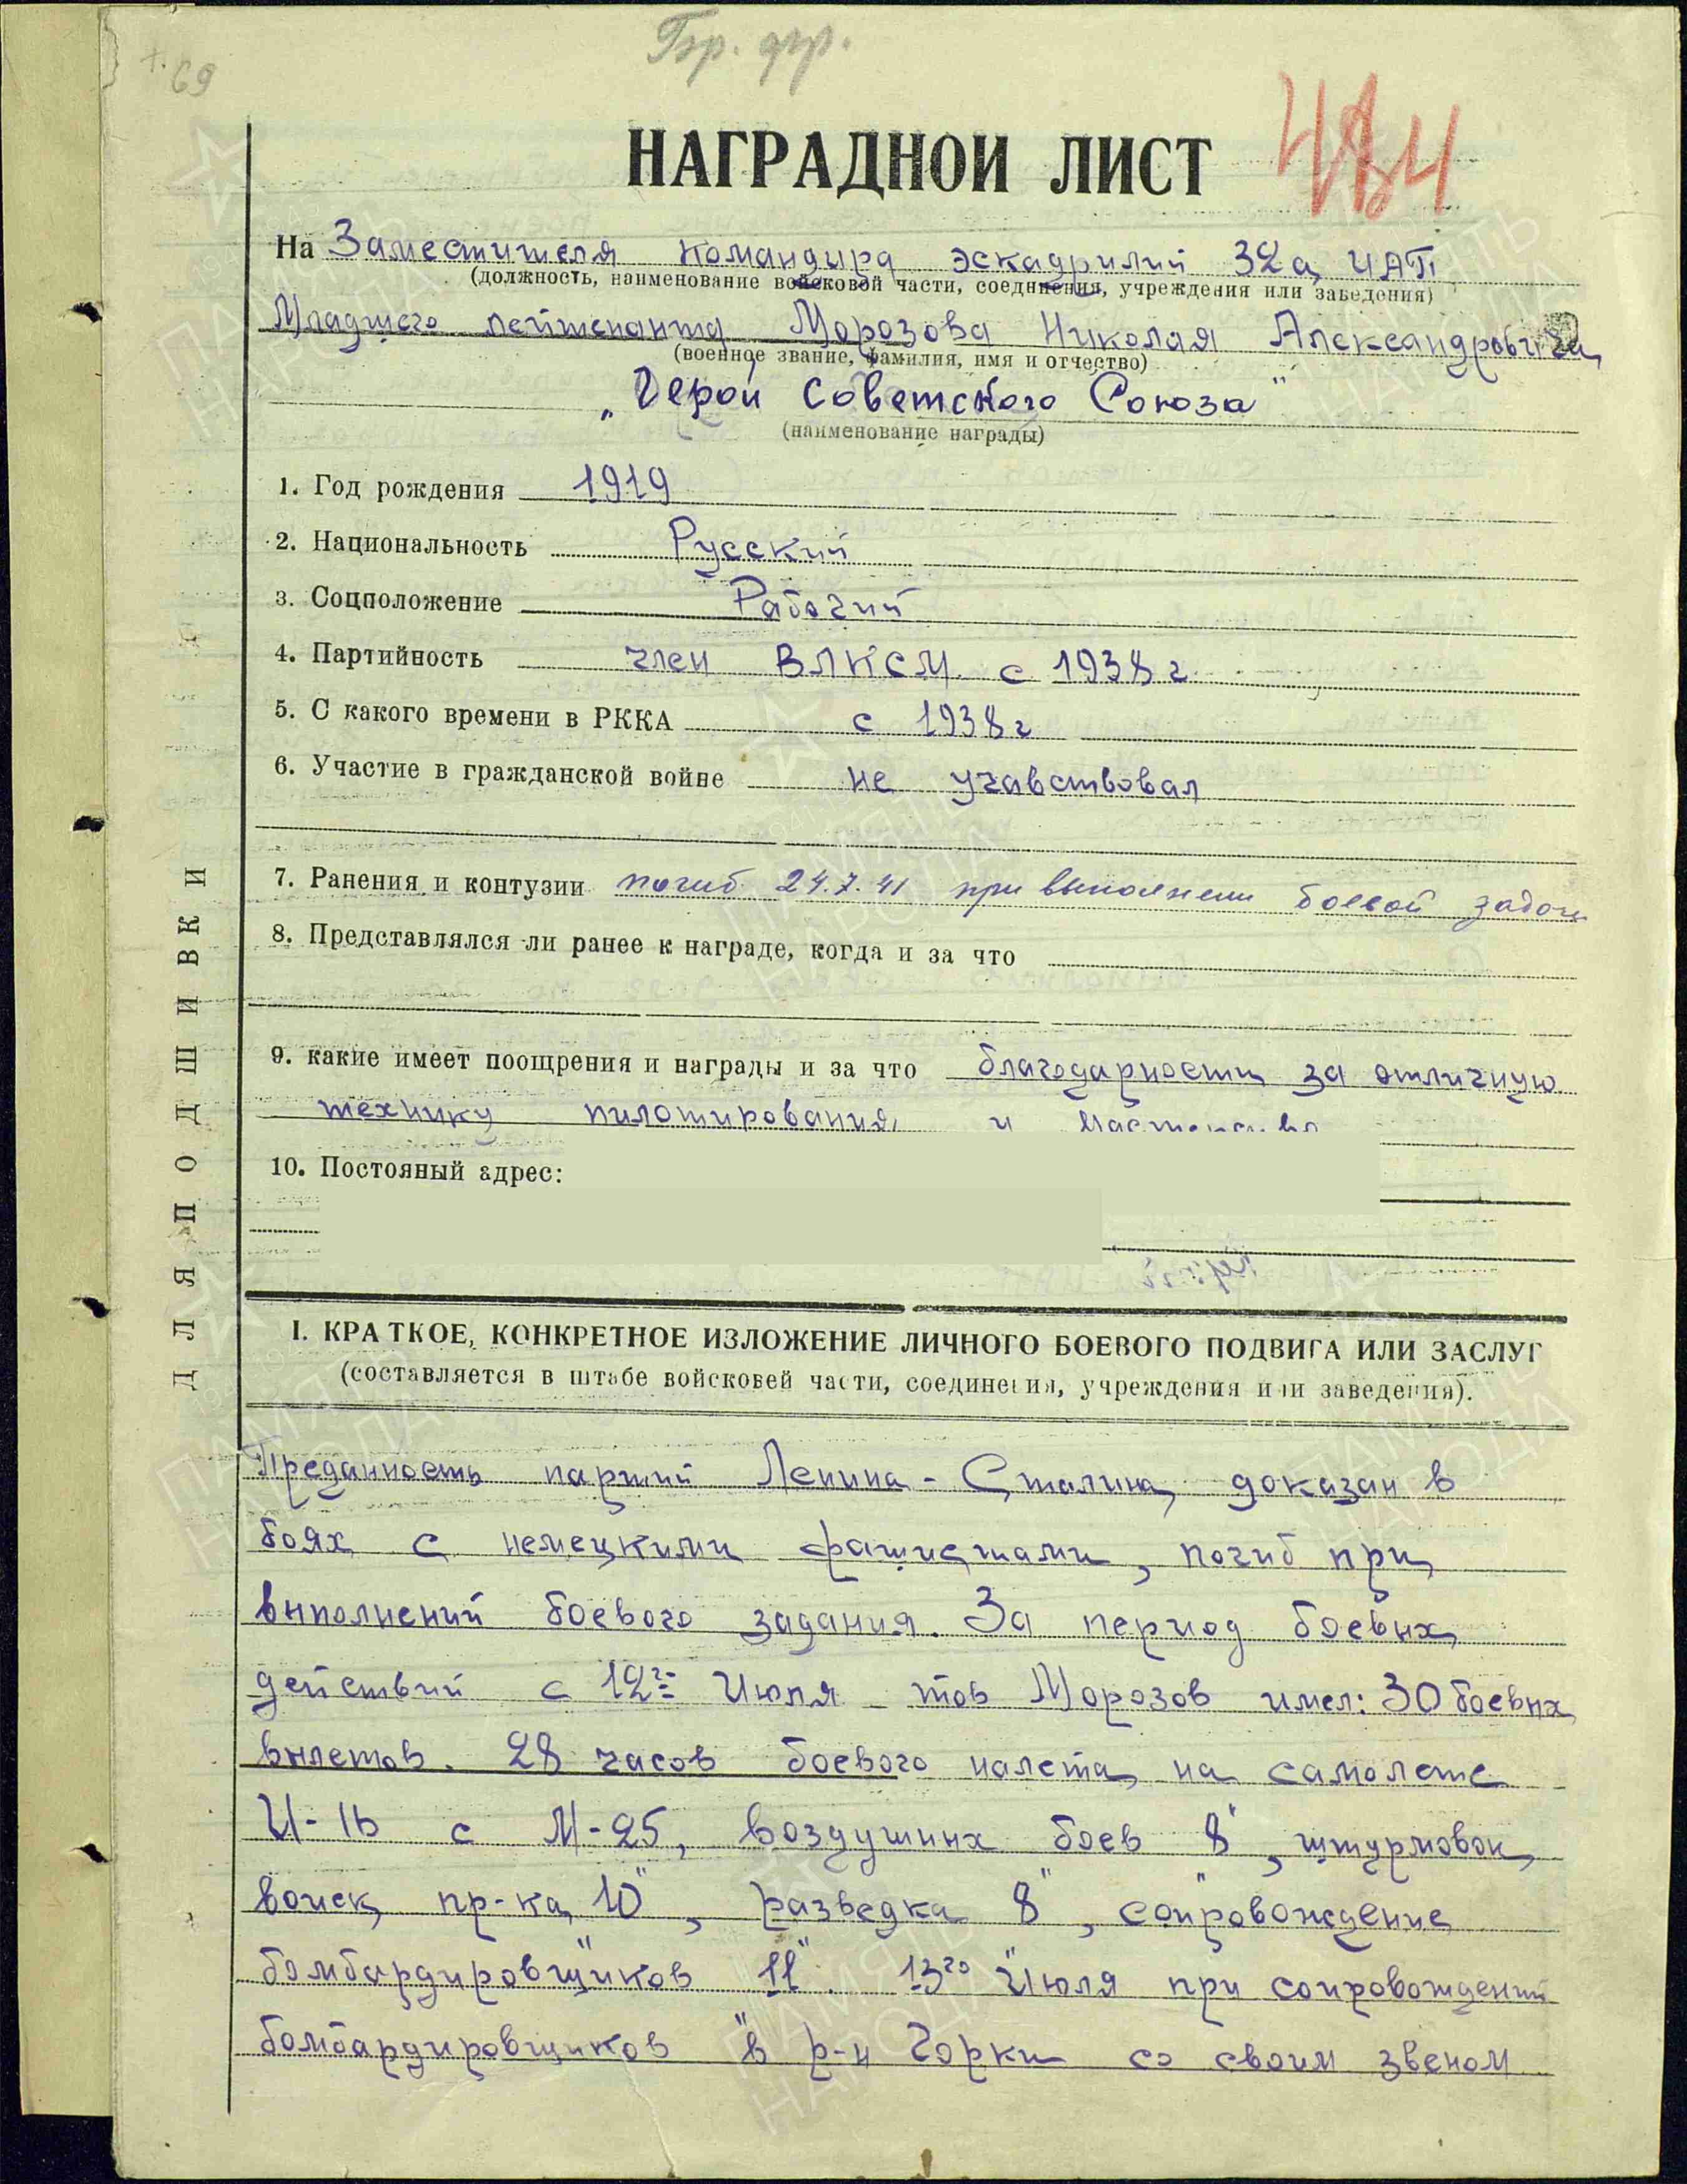 69
НАГРАДНОЙ ЛИСТ
На Заместителя командира эскадрилий 32а ИАП
(должность, наименование войсковой части, соединения, учреждения или заведения)
Младшего лейтенанта Морозова Николая Александровича
(военное звание, фамилия, имя и отчество)
„Герой Советского Союза"
(наименование награды)
1. Год рождения 1919
2. Национальность Русский
3. Соцположение Рабочий
4. Партийность член ВЛКСМ с 1938 г
5. С какого времени в РККА с 1938 г
6. Участие в гражданской войне не учавствовал
7. Ранения и контузии погиб 24.7.41 при выполнении боевой задачи
8. Представлялся ли ранее к награде, когда и за что
9. какие имеет поощрения и награды и за что благодарности за отличную
технику пилотирования и
10. Постояный адрес:
ДЛЯ ПОДШИВКИ
I. КРАТКОЕ, КОНКРЕТНОЕ ИЗЛОЖЕНИЕ ЛИЧНОГО БОЕВОГО ПОДВИГА ИЛИ ЗАСЛУГ
(составляется в штабе войсковей части, соединения, учреждения или заведения).
Преданность партии Ленина - Сталина доказал в
боях с немецкими фашистами, погиб при
выполнений боевого задания. За период боевых
действий с 12го Июля тов Морозов имел: 30 боевых
вылетов. 28 часов боевого налета на самолете
И-16 с М-25, воздушных боев 8", штурмовок
войск пр-ка 10", разведка 8", сопровождение
бомбардировщиков 11". 13го Июля при сопровождений
бомбардировщиков "в р-н Горки со своим звеном
ПАМЯТЬ НАРОДА